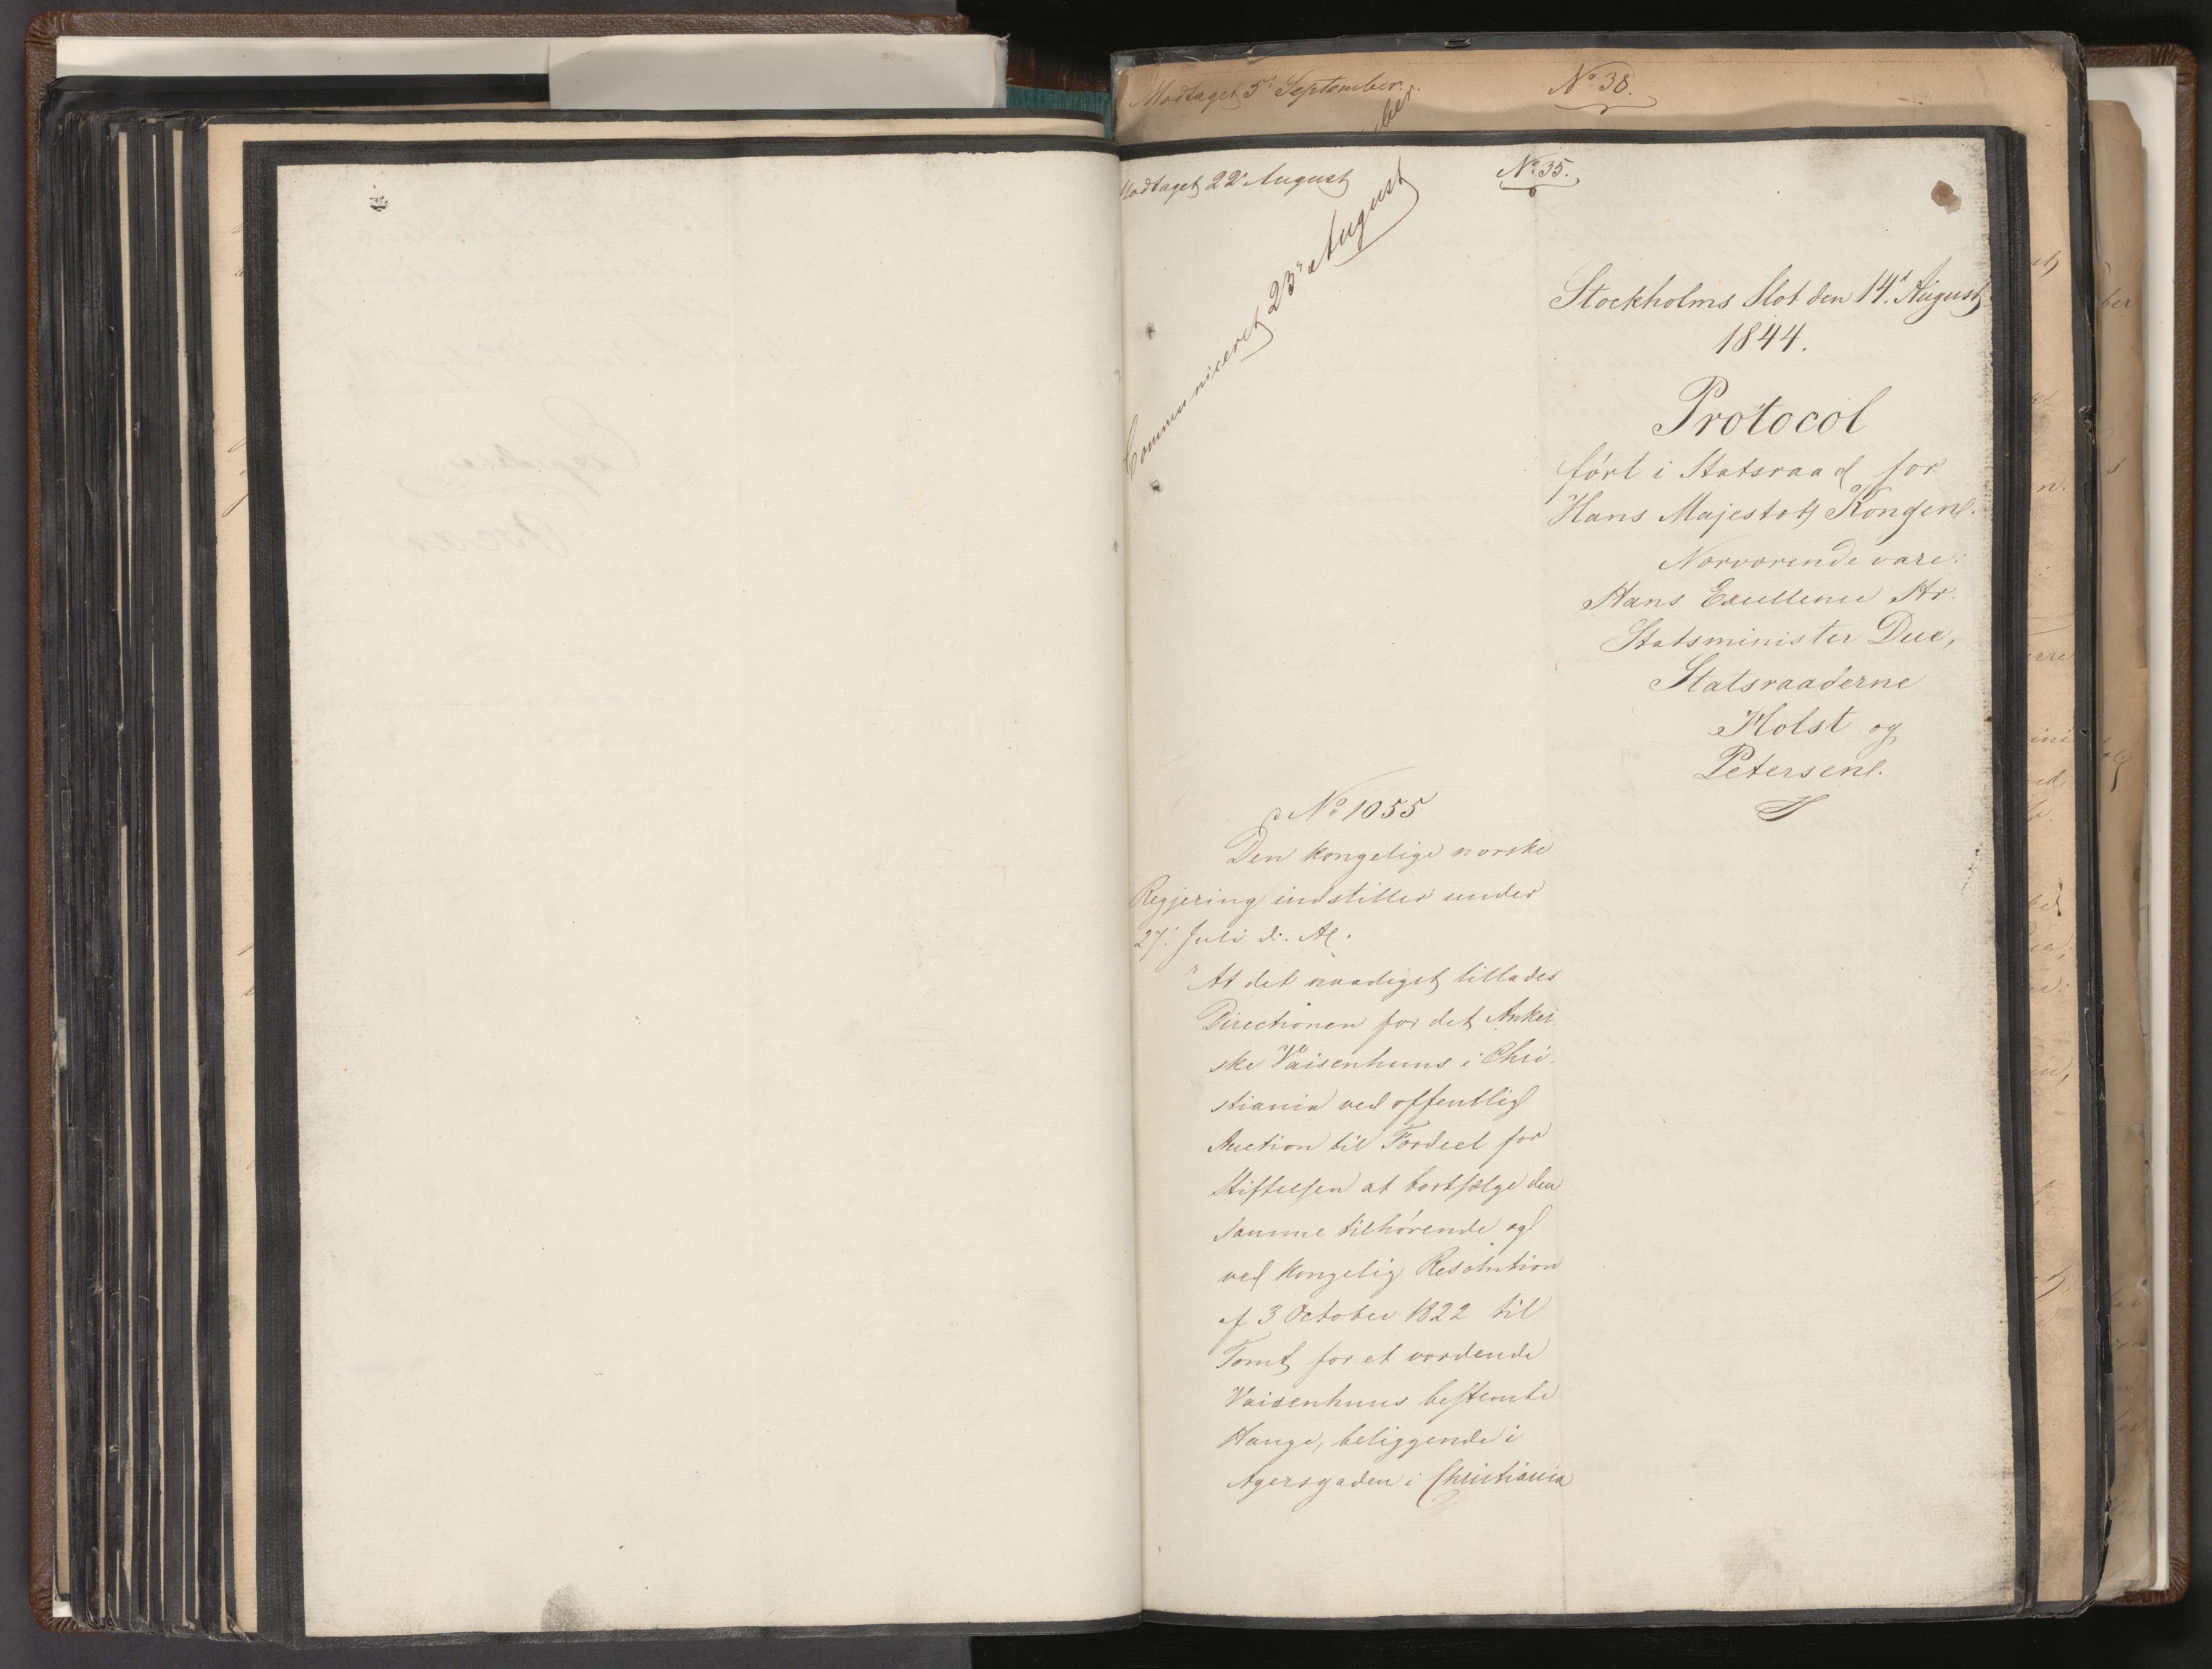 Modtaget 5t September.
No 38.
Modtaget 22' August
No 35.
Communiceret 23' August
Stockholms Slot den 14t August
1844.
Protocol
ført i Statsraad for
Hans Majestæt Kongen.
Nærværende vare:
Hans Excellence Hr.
Statsminister Due,
Statsraaderne
Holst og
Petersen.
No 1055
Den kongelige norske
Regjering indstiller under
27. Juli d. A.
"At det naadigst tillades
Directionen for det Anker
ske Vaisenhuus i Chri-
stiania ved offentlig
Auction til Fordeel for
Stiftelsen at bortsælge den
samme tilhørende og
ved kongelig Resolution
af 3 October 1822 til
Tomt for et vordende
Vaisenhuus bestemte
Hauge, beliggende i
Agersgaden i Christiania